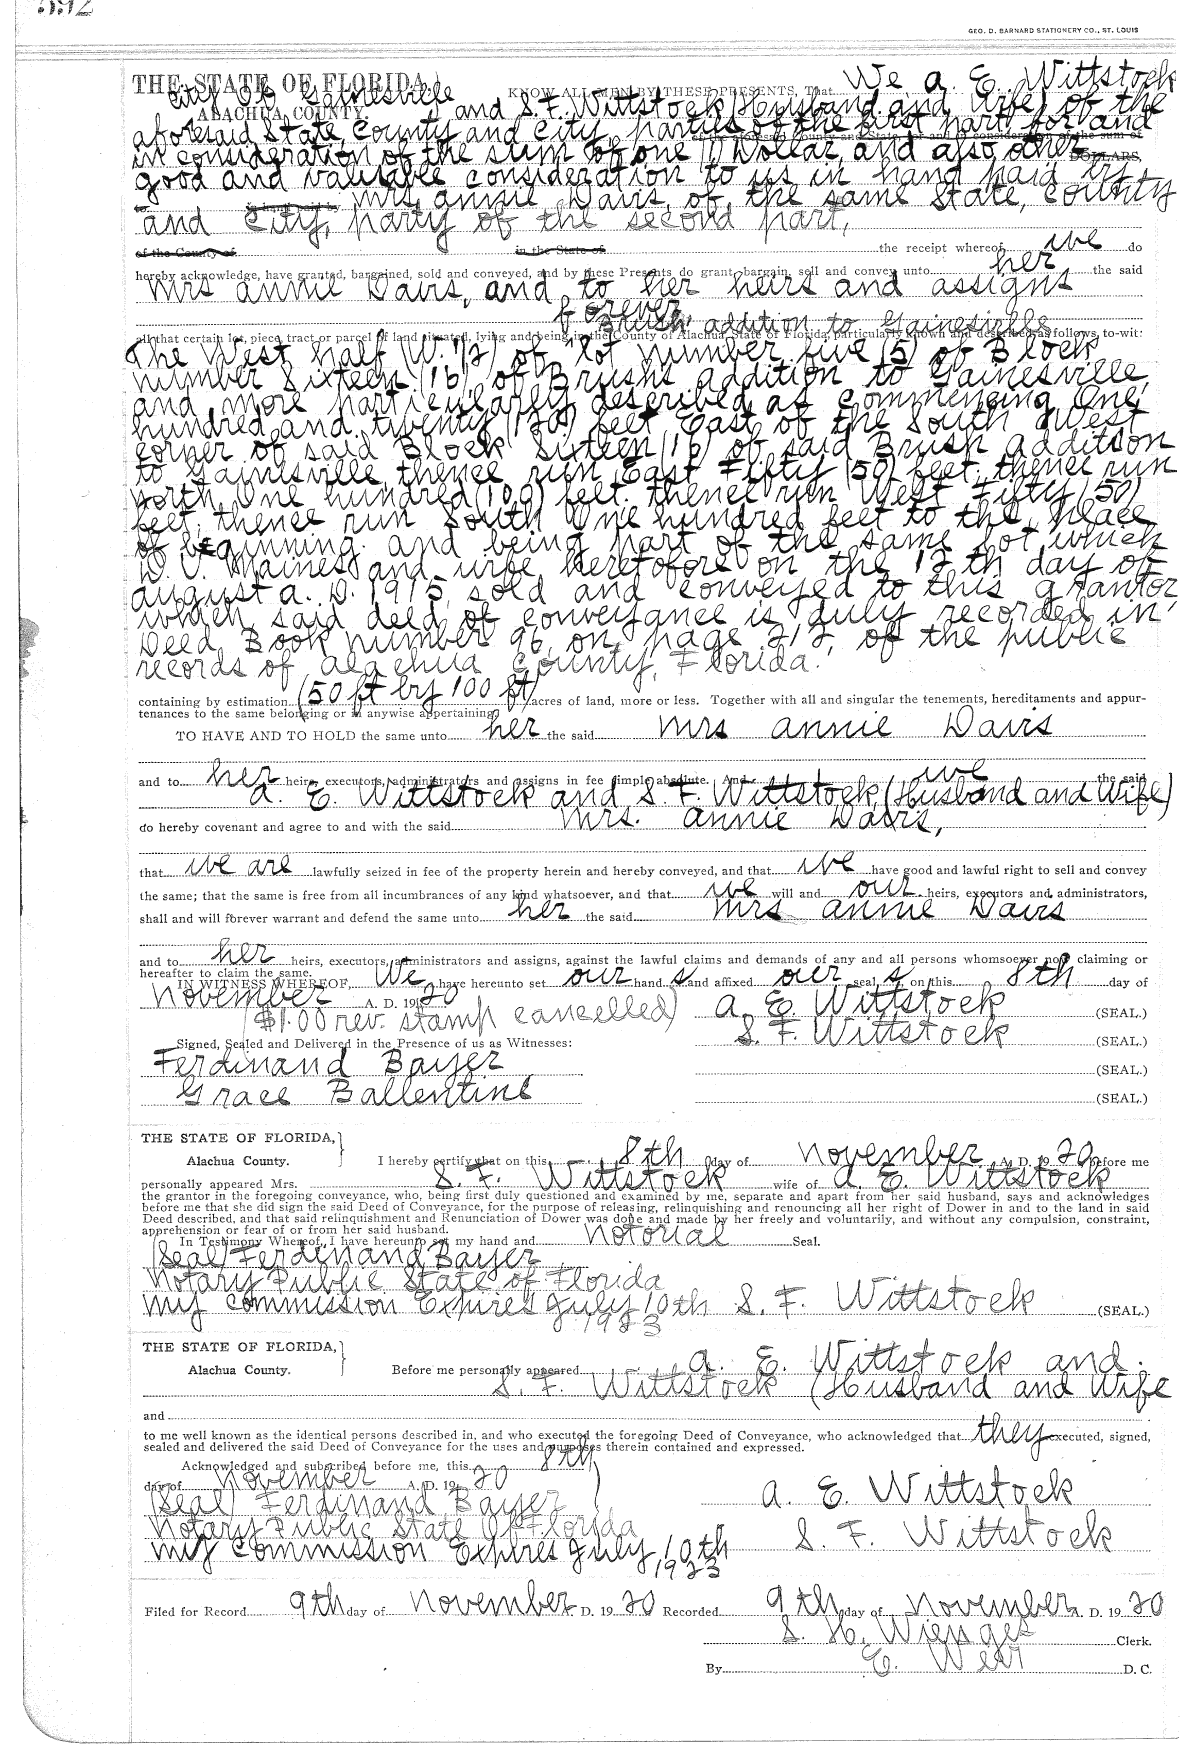 592
GEO. D. BARNARD STATIONERY CO., ST. LOUIS
THE STATE OF FLORIDA,
KNOW ALL MEN BY THESE PRESENTS, That We A. E. Wittstock
City of Gainesville
ALACHUA COUNTY. and S. F. Wittstock (Husband and Wife of the
aforesaid State, County and City, parties of the first part for and
in consideration of the sum of one (1) Dollar, and also other DOLLARS,
good and valuable consideration to us in hand paid by
Mrs. Annie Davis, of, the same State, County
and City, party of the second part,
of the County of in the State of the receipt whereof we do
hereby acknowledge, have granted, bargained, sold and conveyed, and by these Presents do grant, bargain, sell and convey unto her the said
Mrs Annie Davis, and to her heirs and assigns
forever
Brush addition to Gainesville
all that certain lot, piece, tract or parcel of land situated, lying and being in the County of Alachua, State of Florida, particularly known and described as follows, to-wit:
The West half (W. 1/2) of lot number five (5) of Block
number Sixteen (16) of Brush's addition to Gainesville,
and more particularly described as commencing One
hundred and twenty (120) feet East of the South West
corner of said Block Sixteen (16) of said Brush addition
to Gainesville, thence run East Fifty (50) feet, thence run
North One hundred (100) feet. thence run West Fifty (50)
feet, thence run South One hundred feet to the place
of beginning. and being part of the same lot which
and wife heretofore on the 12th day of
August A. D. 1915, sold and conveyed to this grantor
which said deed of conveyance is duly recorded in
Deed Book number 96, on page 212, of the public
records of Alachua County, Florida.
containing by estimation (50 ft by 100 ft) acres of land, more or less. Together with all and singular the tenements, hereditaments and appur-
tenances to the same belonging or in anywise appertaining.
TO HAVE AND TO HOLD the same unto her the said Mrs Annie Davis
and to her heirs, executors, administrators and assigns in fee simple absolute. And we the said
A. E. Wittstock and S. F. Wittstock (Husband and Wife)
do hereby covenant and agree to and with the said Mrs. Annie Davis,
that we are lawfully seized in fee of the property herein and hereby conveyed, and that we have good and lawful right to sell and convey
the same; that the same is free from all incumbrances of any kind whatsoever, and that we will and our heirs, executors and administrators,
shall and will forever warrant and defend the same unto her the said Mrs Annie Davis
and to her heirs, executors, administrators and assigns, against the lawful claims and demands of any and all persons whomsoever now claiming or
hereafter to claim the same.
IN WITNESS WHEREOF, We have hereunto set our hand s and affixed our seal s on this 8th day of
November A. D. 1920
($1.00 rev. stamp cancelled) A. E. Wittstock (SEAL.)
S. F. Wittstock (SEAL.)
Signed, Sealed and Delivered in the Presence of us as Witnesses:
Ferdinand Bayer (SEAL.)
Grace Ballentine (SEAL.)
THE STATE OF FLORIDA,
Alachua County. I hereby certify that on this 8th day of November A. D. 1920 before me
personally appeared Mrs. S. F. Wittstock wife of A. E. Wittstock
the grantor in the foregoing conveyance, who, being first duly questioned and examined by me, separate and apart from her said husband, says and acknowledges
before me that she did sign the said Deed of Conveyance, for the purpose of releasing, relinquishing and renouncing all her right of Dower in and to the land in said
Deed described, and that said relinquishment and Renunciation of Dower was done and made by her freely and voluntarily, and without any compulsion, constraint,
apprehension or fear of or from her said husband.
In Testimony Whereof, I have hereunto set my hand and Notorial Seal.
(Seal) Ferdinand Bayer
Notary Public State of Florida
My Commission Expires July 10th S. F. Wittstock (SEAL.)
1923
THE STATE OF FLORIDA,
Alachua County. Before me personally appeared A. E. Wittstock and
S. F. Wittstock (Husband and Wife
and
to me well known as the identical persons described in, and who executed the foregoing Deed of Conveyance, who acknowledged that they executed, signed,
sealed and delivered the said Deed of Conveyance for the uses and purposes therein contained and expressed.
Acknowledged and subscribed before me, this 8th
day of November A. D. 1920
(Seal) Ferdinand Bayer A. E. Wittstock
Notary Public State Of Florida S. F. Wittstock
My Commission Expires July 10th
1923
Filed for Record 9th day of November D. 1920 Recorded 9th day of November A. D. 1920
S. H. Wienges Clerk.
By E. Weir D. C.